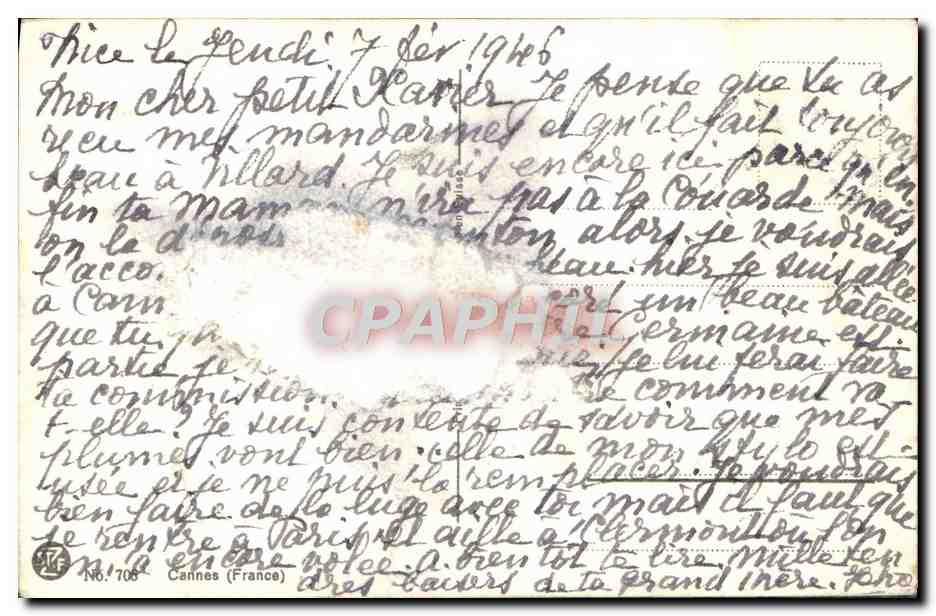 Nice le Jeudi 7 fév 1946
Mon cher petit Xavier Je pense que tu as
reçu mes mandarines et qu'il fait toujours
beau à Villard. Je suis encore ici parce qu'en
fin ta maman n'ira pas à la Couarde mais
on la alors je voudrais
l'acco beau. hier je suis allée
à Cann un beau bâteau
que tu Germaine est
partie je Je lui ferai faire
ta commission comment va
t-elle? Je suis contente de savoir que mes
plumes vont bien. celle de mon stylo est
usée et je ne puis la remplacer. Je voudrais
bien faire de la luge avec toi mais il faut que
je rentre à Paris et aille à Clermont où l'on
m'a encore volée. a bientôt te lire. mille ten
dres baisers de ta grand mère.
No. 706 Cannes (France)
CPAPHIL